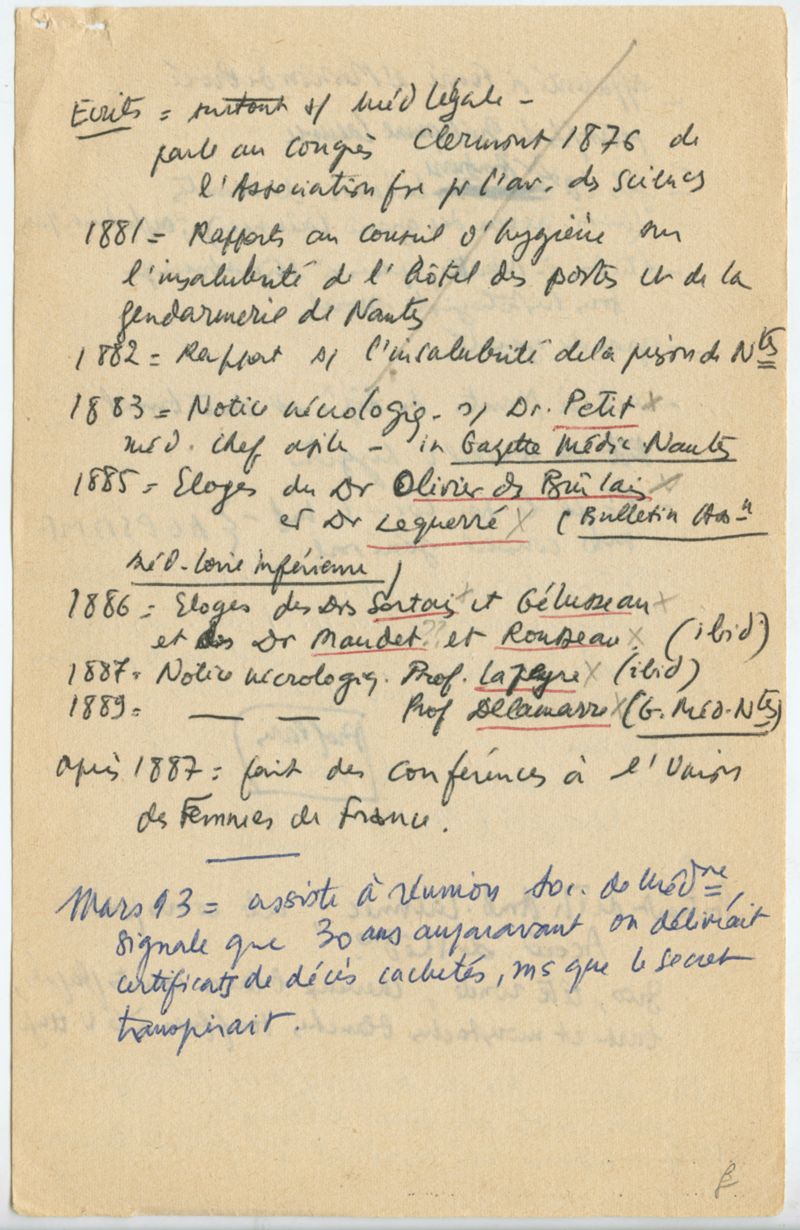 Ecrits = surtout s/ méd légale –
parle au congrès Clermont 1876 de
l'Association fse pr l'av. des sciences
1881 = Rapports au conseil d'hygiène sur
l'insalubrité de l'hôtel des postes et de la
gendarmerie de Nantes
1882 = Rapport s/ l'insalubrité de la prison de Ntes
1883 = Notice nécrologiq. s/ Dr. Petit x
méd. chef asile – in Gazette Médic Nantes
1885 = Eloges du Dr Olivier des Brûlais x
et Dr Lequerré x (Bulletin Assn
Méd. Loire Inférieure)
1886 = Eloges des Drs Sortais x et Gélusseau x
et des Dr Maudet ?? et Rousseau x (ibid)
1887 = Notice nécrologiq. Prof. Lapeyre x (ibid)
1889 = — — Prof Delamarre x (G. Méd. Ntes)
après 1887 = fait des conférences à l'Union
des Femmes de France.
Mars 93 = assiste à réunion Soc. de Médne,
signale que 30 ans auparavant on délivrait
certificats de décès cachetés, ms que le secret
transpirait.